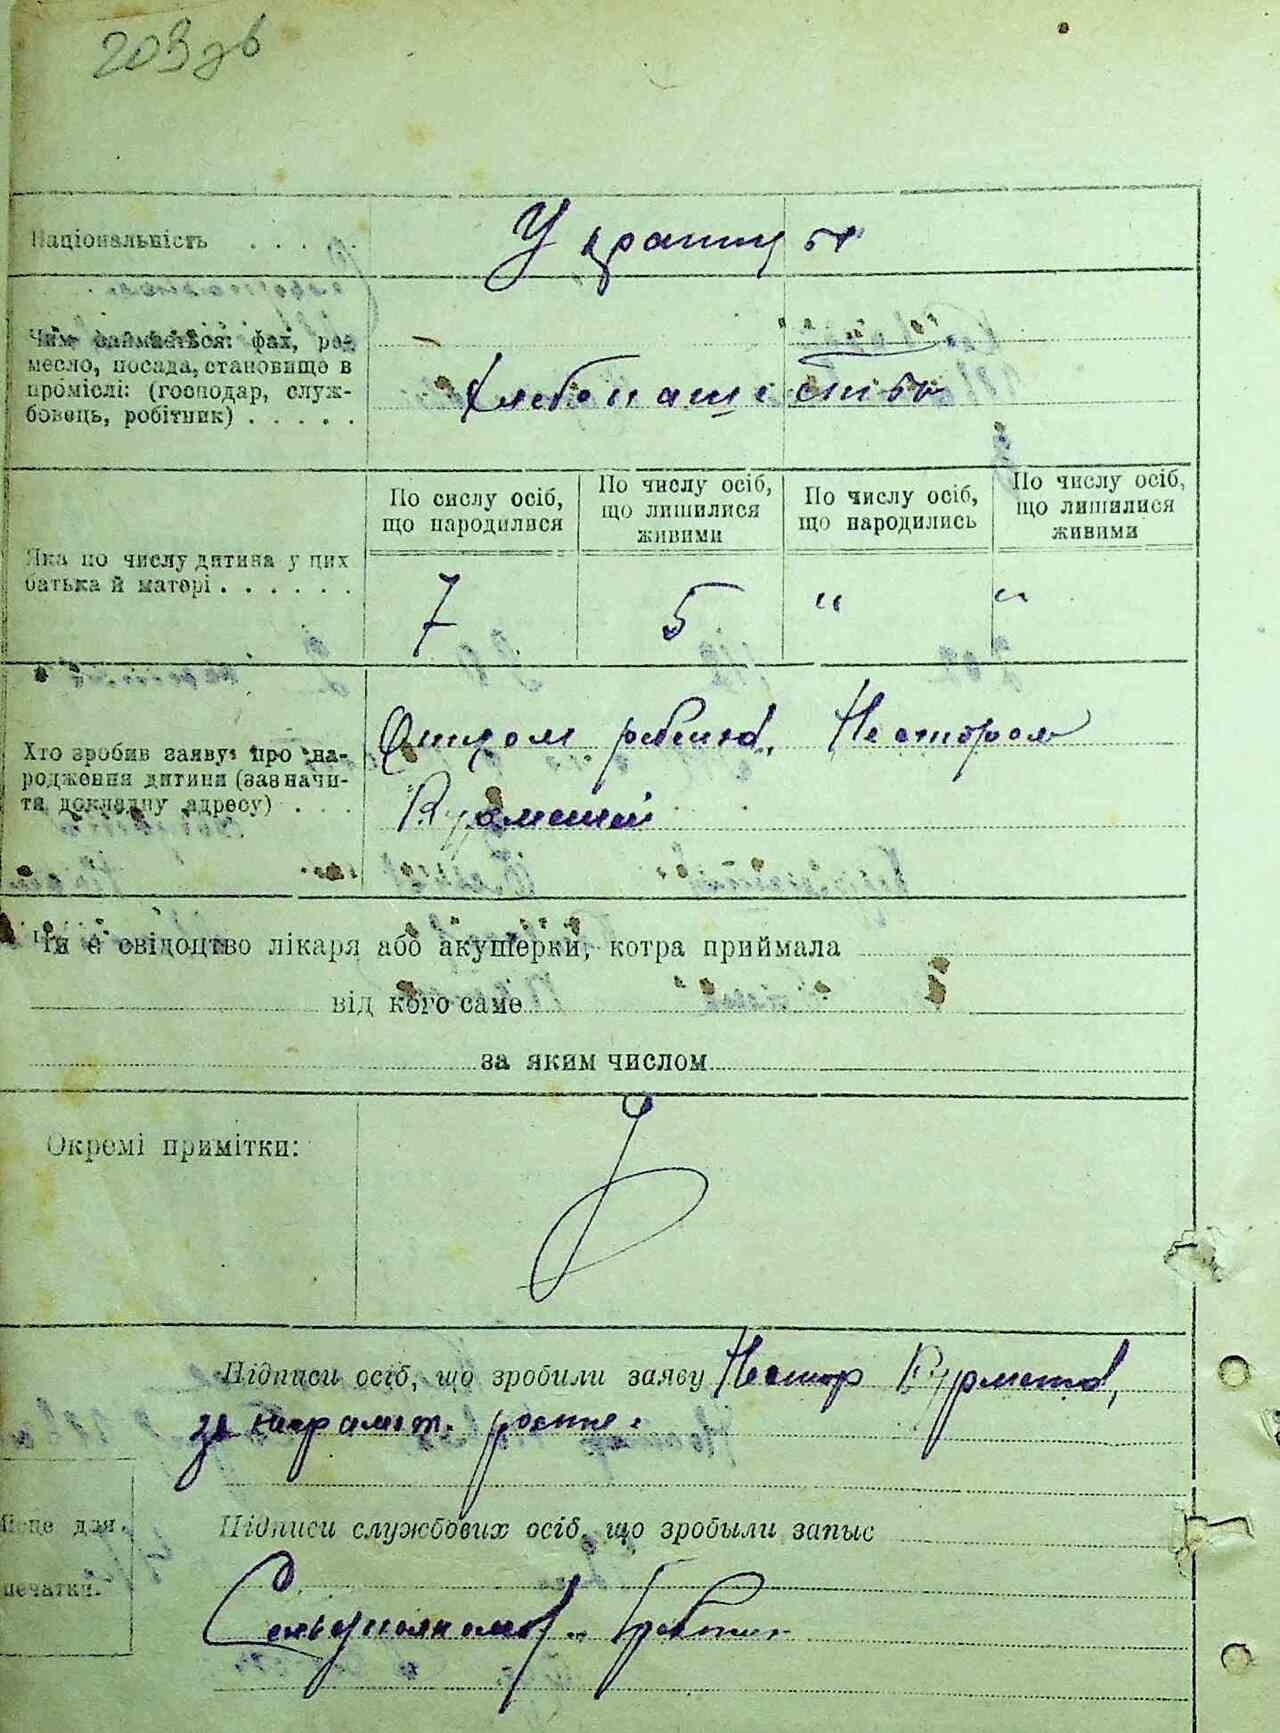 203 зв
Національність . . . .
Украинцы
Чим займається: фах, ре-
месло, посада, становище в
проміслі: (господар, служ-
бовець, робітник) . . . . .
Хлебопашество
Яка по числу дитина у цих
батька й матері . . . . . .
По числу осіб,
що народилися
По числу осіб,
що лишилися
живими
По числу осіб,
що народились
По числу осіб,
що лишилися
живими
7 5 " "
Хто зробив заяву про на-
родження дитини (зазначи-
ти докладну адресу) . . .
Отцом ребенка, Нестором
Чи є свідоцтво лікаря або акушерки, котра приймала
від кого саме
за яким числом
Окремі примітки:
Підписи осіб, що зробили заяву Нестор
Місце для
печатки.
Підписи службових осіб, що зробыли запыс